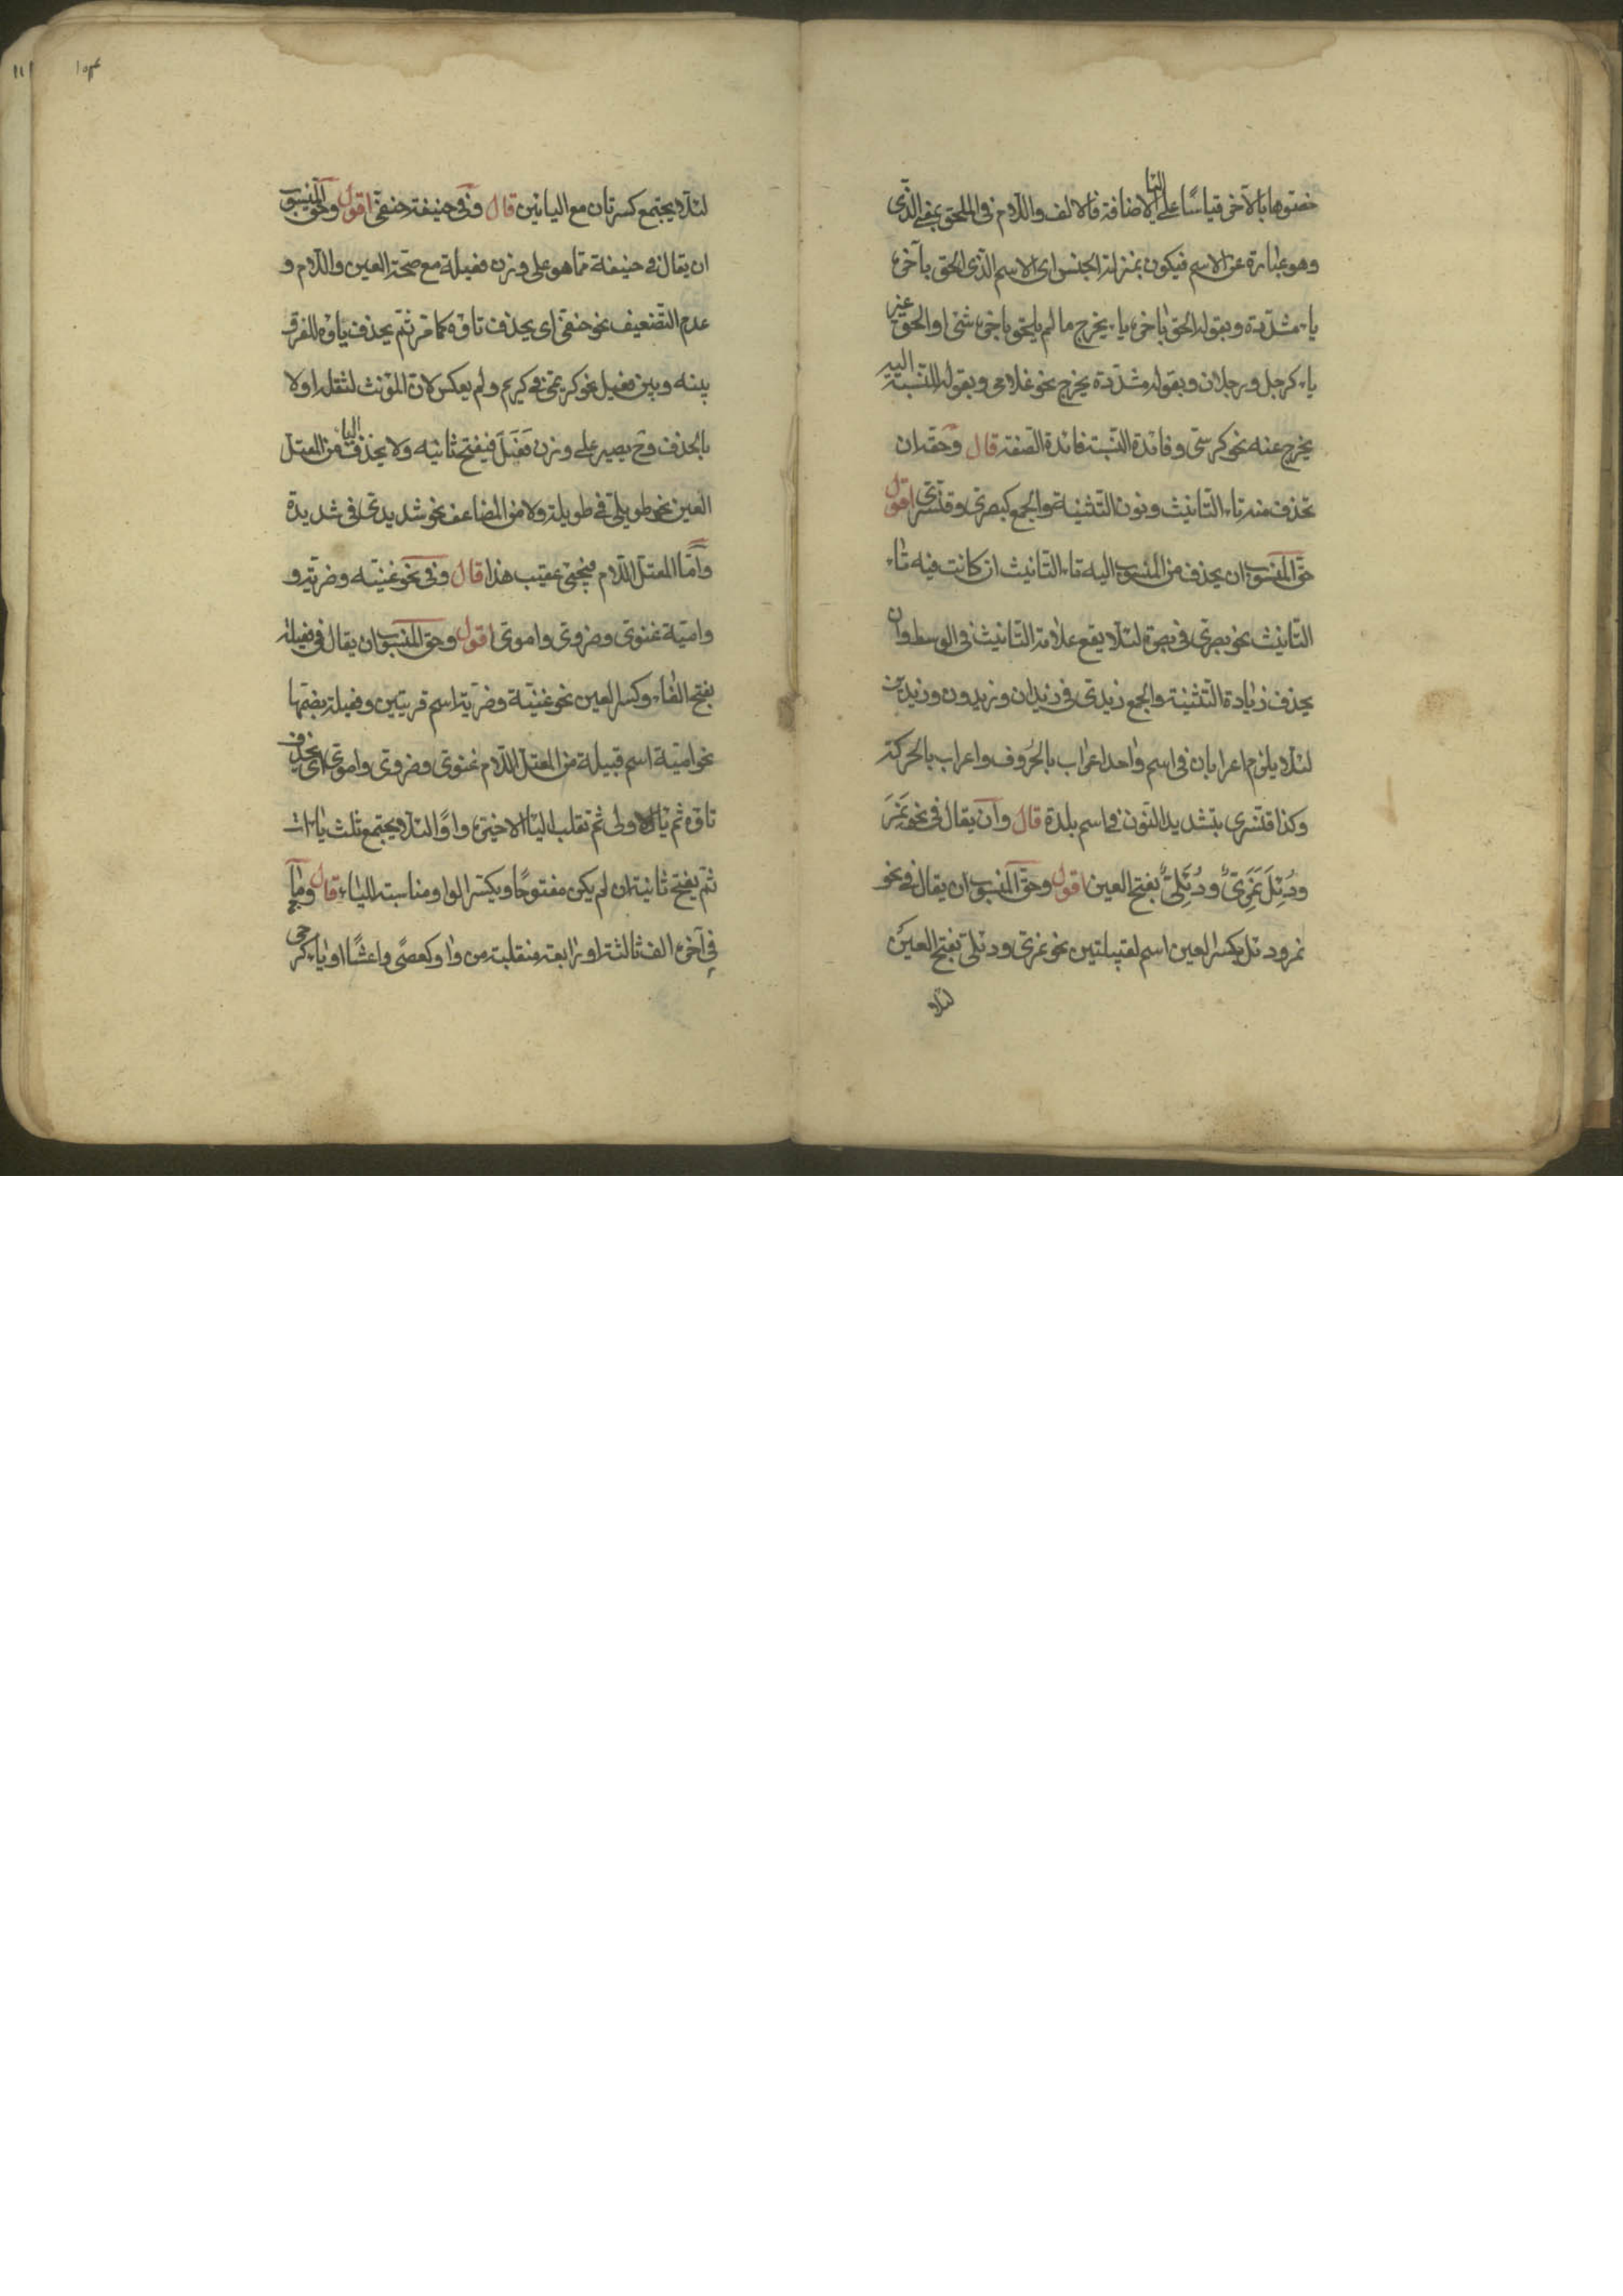 خصّوها بالآخر قياسًا على الياء الاضافة فالالف واللام فى الملحق بمعنى الذى
وهو عبارة عن الاسم فيكون بمنزلة الجنس اى الاسم الذى الحق بآخره
ياء مشدّدة وبقوله الحق بآخره ياء يخرج ما لم يلحق بآخره شئ او الحق غير
ياء كرجل ورجلان وبقوله مشدّدة يخرج نحو غلامى وبقوله للنسبة اليه
يخرج عنه نحو كرسىّ وفائدة النسبة فائدة الصفة قال وحقه ان
تحذف منه تاء التانيث ونون التثنية والجمع كبصرىّ وقنّسرىّ اقول
حقّ المنسوب ان يحذف من المنسوب اليه تاء التانيث ان كانت فيه تاء
التّانيث نحو بصرىّ فى بصرة لئلّا يقع علامة التّانيث فى الوسط وان
يحذف زيادة التّثنية والجمع زيدىّ فى زيدان وزيدون وزيدين
لئلّا يلزم اعرابان فى اسم واحد اعراب بالحروف واعراب بالحركة
وكذا قنّسرى بتشديد النّون فى اسم بلدة قال وان يقال فى نحو نَمِرَ
ودُئِلَ نَمَرِىٌّ ودُئَلِىٌّ بفتح العين اقول وحقّ المنسوب ان يقال فى نحو
نمر ودئل بكسر العين اسم لقبيلتين نحو نمرىّ ودئلىّ بفتح العين
لئلّا
١٥٣
١١١
لئلّا يجتمع كسرتان مع اليائين قال وفى حنيفة حنفىّ اقول وحق المنسوب
ان يقال فى حنيفة ممّا هو على وزن فعيلة مع صحّة العين واللّام و
عدم التّضعيف نحو حنفىّ اى يحذف تاؤه كما مرّ ثمّ يحذف ياؤه للفرق
بينه وبين فعيل نحو كريمىّ فى كريم ولم يعكس لانّ المؤنث لثقله اولا
بالحذف وح يصير على وزن فَعِلَ فيفتح ثانيه ولا يحذف الياء من المعتلّ
العين نحو طويلىّ فى طويلة ولا من المضاعف نحو شديدىّ فى شديدة
وامّا المعتلّ اللّام فيجئ عقيب هذا قال وفى نحو غنيّه وضريّه و
واميّة غنوىّ وضروىّ واموىّ اقول وحق المنسوب ان يقال فى فعيلة
بفتح الفاء وكسر العين نحو غنيّة وضريّة اسم قريتين وفعيلة بضمّها
نحو اميّة اسم قبيلة من المعتلّ اللّام غنوىّ وضروىّ واموىّ اى يحذف
تاؤه ثم ياء الاولى ثم تقلب الياء الاخيرة واوًا لئلّا يجتمع ثلث ياءات
ثمّ يفتح ثانيه ان لم يكن مفتوحًا ويكسر الواو مناسبة الياء قال وما
فى آخره الف ثالثة او رابعة منقلبة من واو كعصًى واعشًا او ياء كرحى